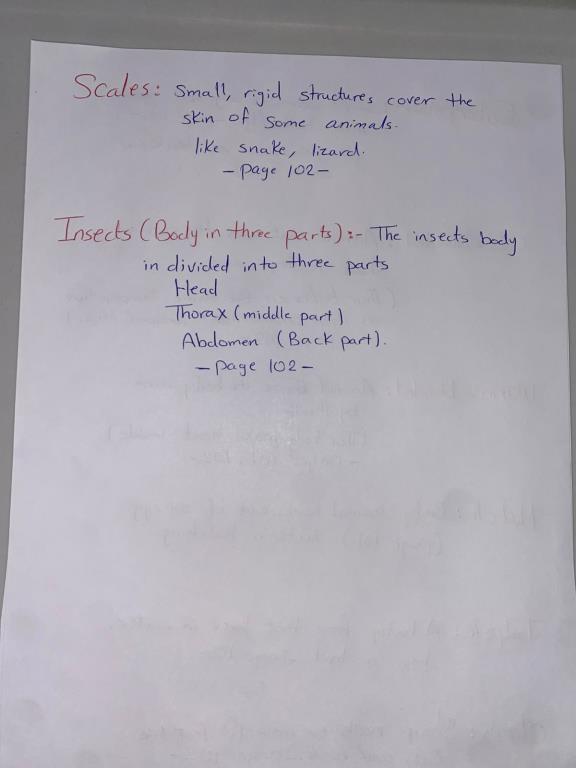 Scales: Small, rigid structures cover the
skin of some animals.
like snake, lizard.
- page 102 -
Insects (Body in three parts) :- The insects body
in divided into three parts
Head
Thorax (middle part)
Abdomen (Back part).
- page 102 -